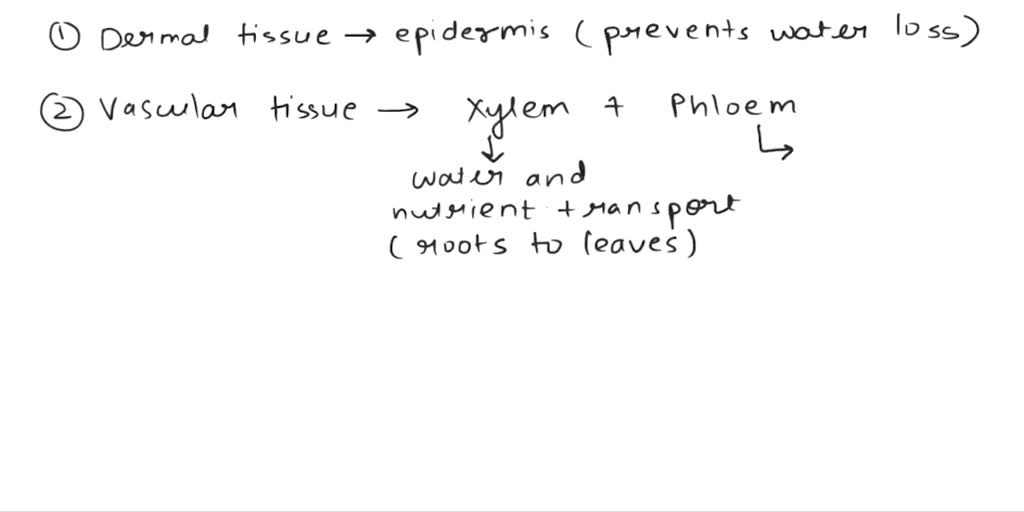 ① Dermal tissue → epidermis (prevents water loss)
② Vascular tissue → Xylem + Phloem
↓ ↳
water and
nutrient transport
(roots to leaves)